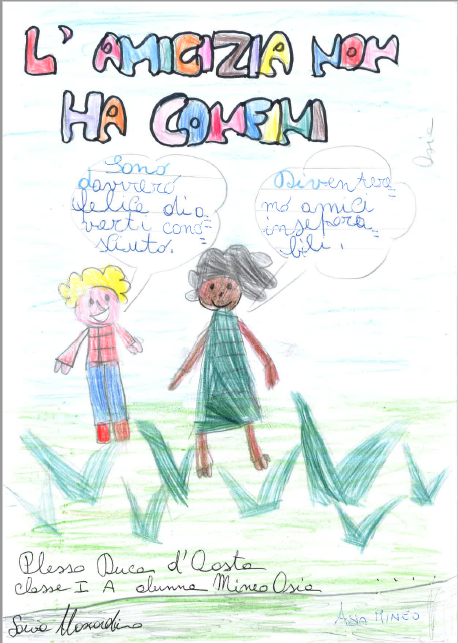 L' AMICIZIA NON
HA CONFINI
Asia
Sono
davvero
felice di a=
verti cono=
sciuto.
Diventere=
mo amici
insepara=
bili.
Plesso Duca d'Aosta
classe I A alunna Mineo Asia
ASIA MINEO